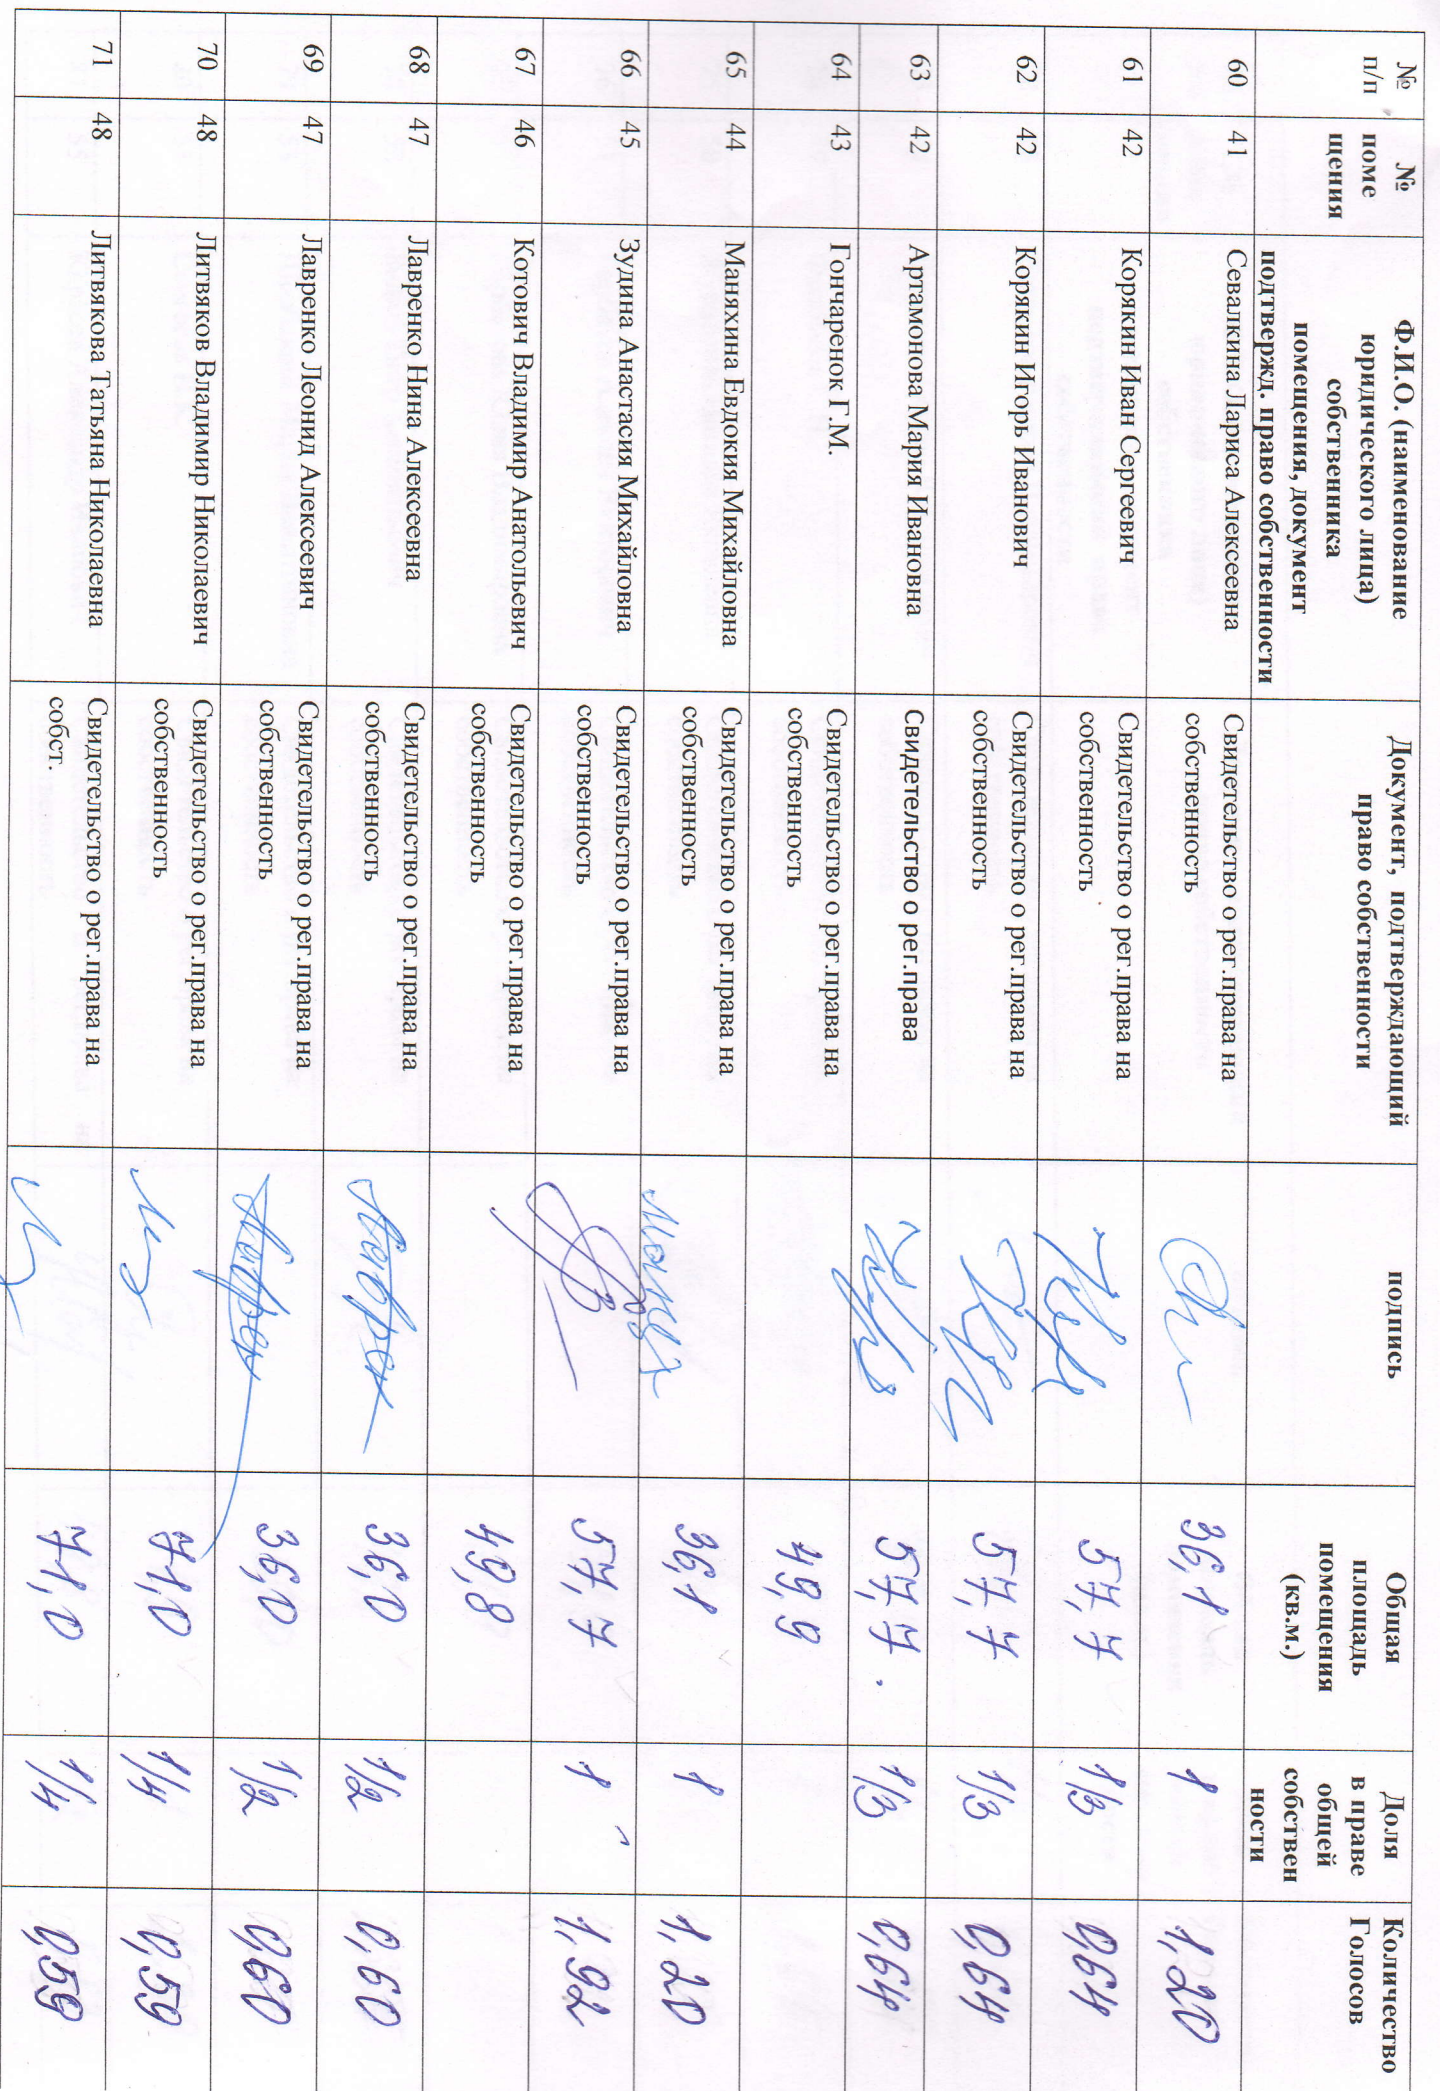 № п/п | № поме щения | Ф.И.О. (наименование юридического лица) собственника помещения, документ подтвержд. право собственности | Документ, подтверждающий право собственности | подпись | Общая площадь помещения (кв.м.) | Доля в праве общей собствен ности | Количество Голосов
60 | 41 | Севалкина Лариса Алексеевна | Свидетельство о рег.права на собственность | | 36,1 | 1 | 1,20
61 | 42 | Корякин Иван Сергеевич | Свидетельство о рег.права на собственность | | 57,7 | 1/3 | 0,64
62 | 42 | Корякин Игорь Иванович | Свидетельство о рег.права на собственность | | 57,7 | 1/3 | 0,64
63 | 42 | Артамонова Мария Ивановна | Свидетельство о рег.права | | 57,7. | 1/3 | 0,64
64 | 43 | Гончаренок Г.М. | Свидетельство о рег.права на собственность | | 49,9 | |
65 | 44 | Маняхина Евдокия Михайловна | Свидетельство о рег.права на собственность | | 36,1 | 1 | 1,20
66 | 45 | Зудина Анастасия Михайловна | Свидетельство о рег.права на собственность | | 57,7 | 1 | 1,92
67 | 46 | Котович Владимир Анатольевич | Свидетельство о рег.права на собственность | | 49,8 | |
68 | 47 | Лавренко Нина Алексеевна | Свидетельство о рег.права на собственность | | 36,0 | 1/2 | 0,60
69 | 47 | Лавренко Леонид Алексеевич | Свидетельство о рег.права на собственность | | 36,0 | 1/2 | 0,60
70 | 48 | Литвяков Владимир Николаевич | Свидетельство о рег.права на собственность | | 71,0 | 1/4 | 0,59
71 | 48 | Литвякова Татьяна Николаевна | Свидетельство о рег.права на собст. | | 71,0 | 1/4 | 0,59